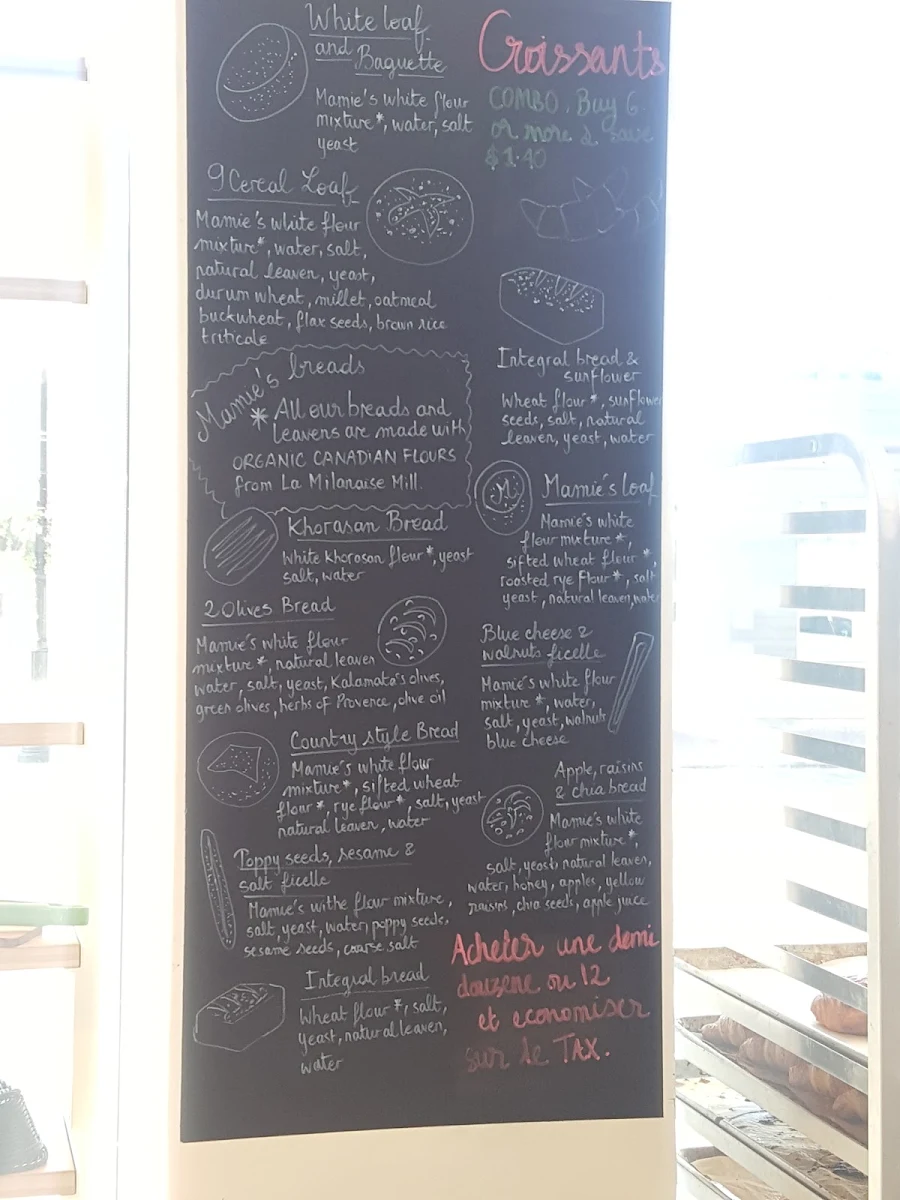 White loaf
and Baguette
Mamie's white flour
mixture*, water, salt
yeast
9 Cereal Loaf
Mamie's white flour
mixture*, water, salt,
natural leaven, yeast,
durum wheat, millet, oatmeal
buckwheat, flax seeds, brown rice
triticale
Mamie's breads
* All our breads and
leavens are made with
ORGANIC CANADIAN FLOURS
from La Milanaise Mill.
Khorasan Bread
White Khorasan flour*, yeast
salt, water
2 Olives Bread
Mamie's white flour
mixture*, natural leaven
water, salt, yeast, Kalamata's olives,
green olives, herbs of Provence, olive oil
Country style Bread
Mamie's white flour
mixture*, sifted wheat
flour*, rye flour*, salt, yeast
natural leaven, water
Poppy seeds, sesame &
salt ficelle
Mamie's withe flour mixture,
salt, yeast, water, poppy seeds,
sesame seeds, coarse salt
Integral bread
Wheat flour*, salt,
yeast, natural leaven,
water
Croissants
COMBO. Buy 6
or more & save
$1.40
Integral bread &
sunflower
Wheat flour*, sunflower
seeds, salt, natural
leaven, yeast, water
M
Mamie's loaf
Mamie's white
flour mixture*,
sifted wheat flour*,
roasted rye flour*, salt
yeast, natural leaven, water
Blue cheese &
walnuts ficelle
Mamie's white flour
mixture*, water,
salt, yeast, walnuts
blue cheese
Apple, raisins
& chia bread
Mamie's white
flour mixture*,
salt, yeast, natural leaven,
water, honey, apples, yellow
raisins, chia seeds, apple juice
Acheter une demi
douzene ou 12
et economiser
sur le TAX.